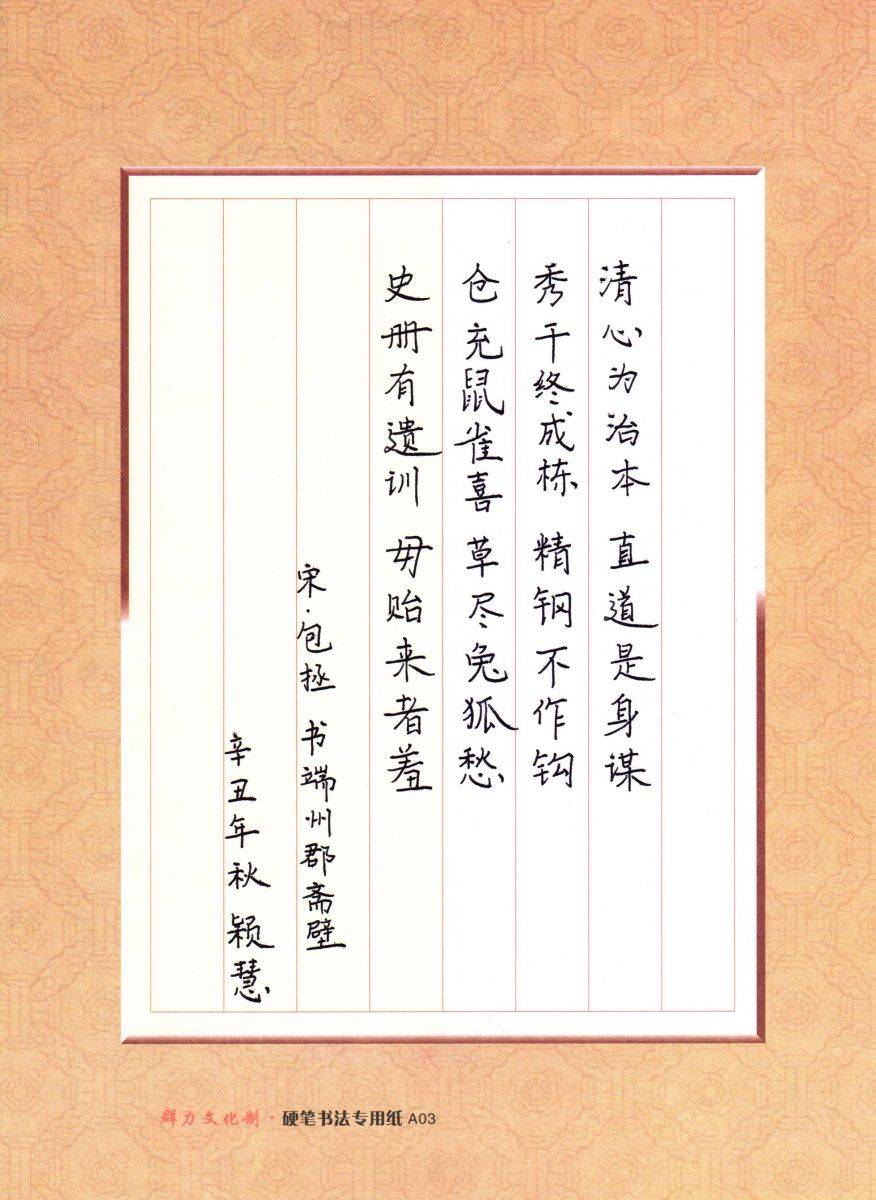 清心为治本 直道是身谋
秀干终成栋 精钢不作钩
仓充鼠雀喜 草尽兔狐愁
史册有遗训 毋贻来者羞
宋·包拯 书端州郡斋壁
辛丑年秋 颖慧
群力文化制·硬笔书法专用纸 A03